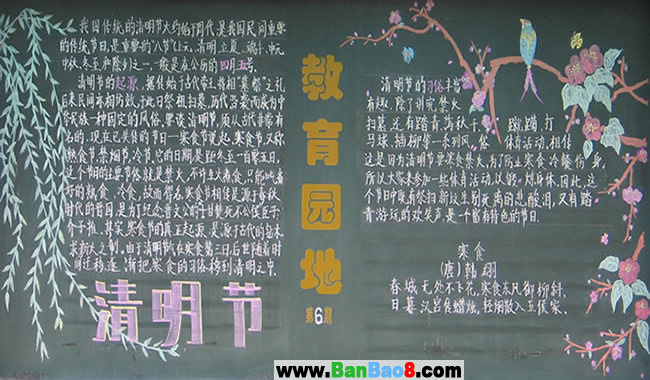 我国传统的清明节大约始于周代,是我国民间重要
的传统节日,是重要的“八节”(上元、清明、立夏、端午、中元、
中秋、冬至和除夕)之一,一般是在公历的四月五号。
清明节的起源,据传始于古代帝王将相“墓祭”之礼,
后来民间亦相仿效,于此日祭祖扫墓,历代沿袭而成为中
华民族一种固定的风俗。要谈清明节,须从古代非常有
名的,现在已失传的节日—寒食节说起。寒食节,又称
熟食节、禁烟节、冷节。它的日期,是距冬至一百零五日,
这个节日的主要节俗就是禁火,不许生火煮食,只能吃备
好的熟食、冷食,故而得名。寒食节相传是源于春秋
时代的晋国,是为了纪念晋文公的
介子推。其实寒食节的真正起源,是源于古代的钻木
求新火之制。由于清明节气在寒食第三日,后世随着时
间迁移,逐渐把寒食的习俗移到清明之中。
清明节
教育园地
第6期
清明节的习俗丰富
有趣,除了讲究禁火
扫墓,还有踏青、荡秋千、蹴鞠、打
马球、插柳等一系列风俗体育活动。相传
这是因为清明节要寒食禁火,为了防止寒食冷餐伤身,
所以大家来参加一些体育活动,以锻炼身体。因此,这
个节日中既有祭扫新坟生别死离的悲酸泪,又有踏
青游玩的欢笑声,是一个富有特色的节日。
寒食
(唐)韩翃
春城无处不飞花,寒食东风御柳斜。
日暮汉宫传蜡烛,轻烟散入五侯家。
www.BanBao8.com